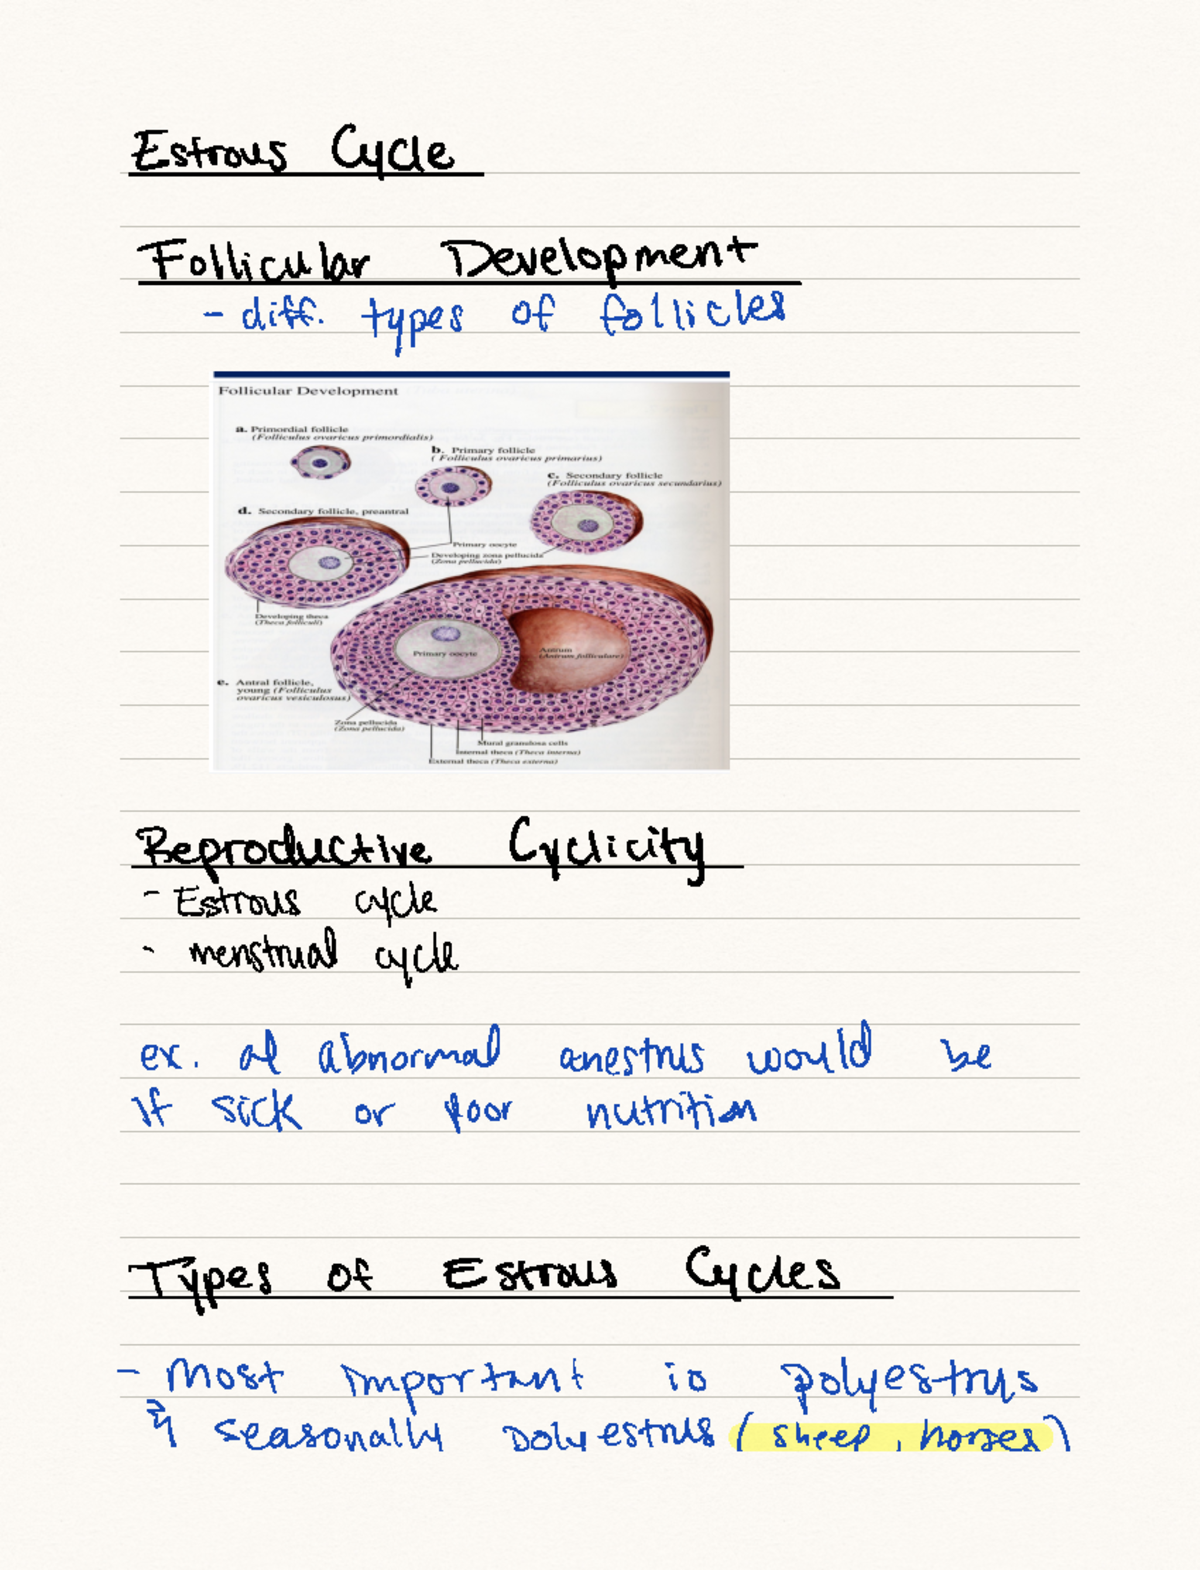 Estrous Cycle
Follicular Development
- diff. types of follicles
Follicular Development
a. Primordial follicle
(Folliculus ovaricus primordialis)
b. Primary follicle
( Folliculus ovaricus primarius)
c. Secondary follicle
(Folliculus ovaricus secundarius)
d. Secondary follicle, preantral
Primary oocyte
Developing zona pellucida
(Zona pellucida)
Developing theca
(Theca folliculi)
Primary oocyte
Antrum
(Antrum folliculare)
e. Antral follicle,
young (Folliculus
ovaricus vesiculosus)
Zona pellucida
(Zona pellucida)
Mural granulosa cells
Internal theca (Theca interna)
External theca (Theca externa)
Reproductive Cyclicity
- Estrous cycle
- menstrual cycle
ex. abnormal anestrus would be
if sick or poor nutrition
Types of Estrous Cycles
- Most important is polyestrus
& seasonally polyestrus (sheep, horses)